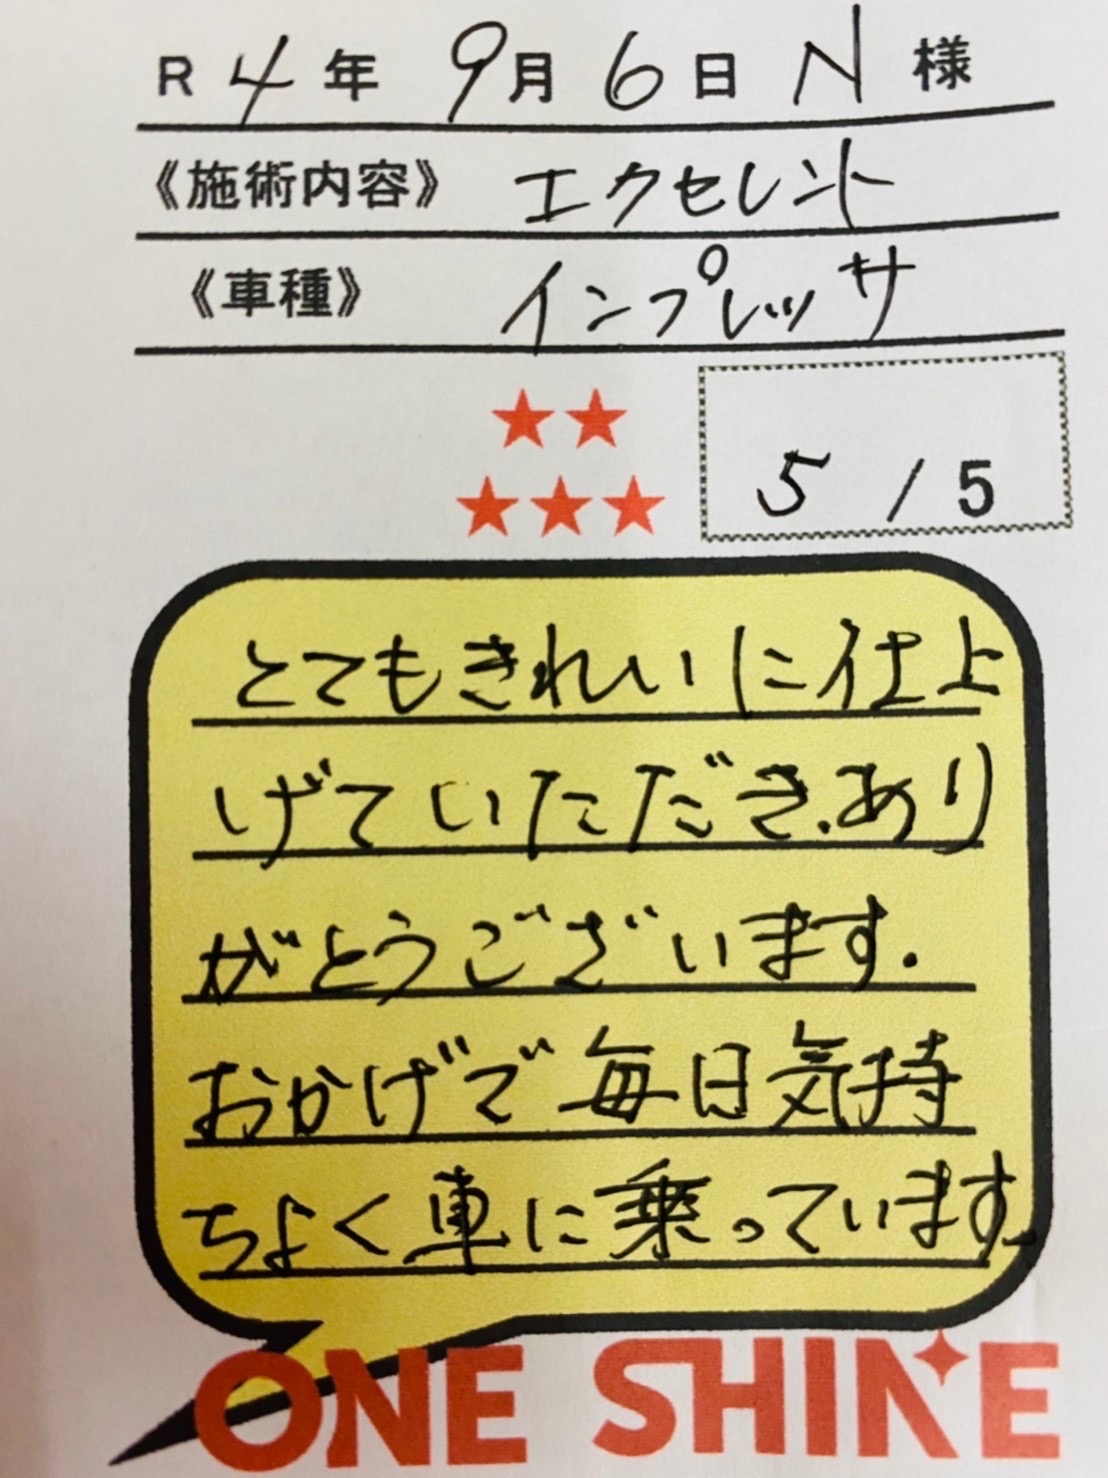 R4年 9月6日 N様
《施術内容》 エクセレント
《車種》 インプレッサ
★★
★★★ 5/5
とてもきれいに仕上
げていただき、あり
がとうございます.
おかげで毎日気持
ちよく車に乗っています.
ONE SHINE